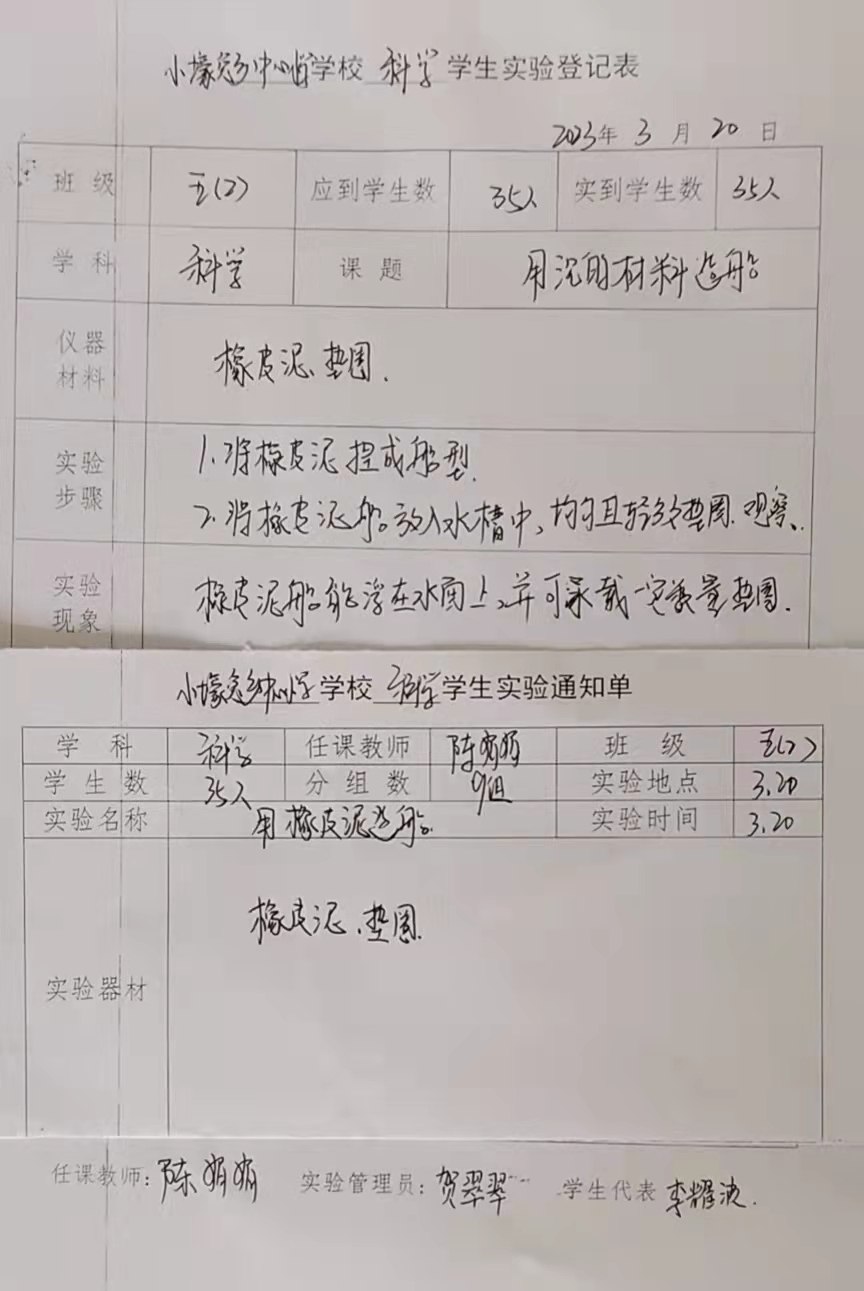 小壕兔乡中心小学学校 科学 学生实验登记表
2023年 3 月 20 日
班 级 五(2) 应到学生数 35人 实到学生数 35人
学 科 科学 课 题 用沉的材料造船
仪器材料 橡皮泥、垫圈.
实验步骤 1.将橡皮泥捏成船型.
2.将橡皮泥船放入水槽中,均匀且轻放垫圈.观察.
实验现象 橡皮泥船能浮在水面上,并可承载一定数量垫圈.
小壕兔乡中心小学学校 科学 学生实验通知单
学 科 科学 任课教师 陈娟娟 班 级 五(2)
学 生 数 35人 分 组 数 9组 实验地点 3.20
实验名称 用橡皮泥造船. 实验时间 3.20
实验器材 橡皮泥、垫圈.
任课教师: 陈娟娟 实验管理员: 贺翠翠 学生代表 李耀波.